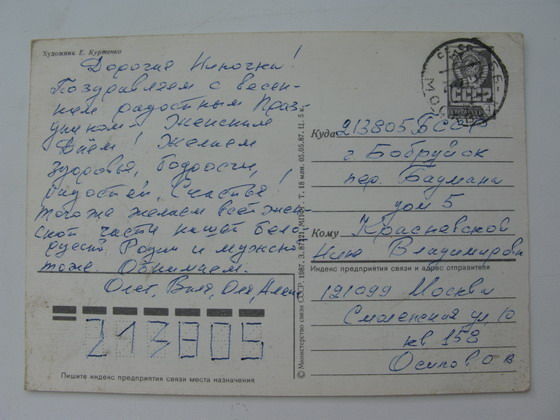 Художник Е. Куртенко
Дорогая Ниночка!
Поздравляем с весен-
ним радостным Праз-
дником Женским
Днём! Желаем
здоровья, бодрости,
радостей, Счастья!
Того же желаем всей жен-
ской части нашей Бело-
руской Родни и мужской
тоже Обнимаем.
Олег, Валя, Оля,
213805
Пишите индекс предприятия связи места назначения
© Министерство связи СССР, 1987. З. 87121. МПФГ. Т. 18 млн. 05.05.87. Ц. 5 к.
СССР
МОС
Куда 213805 БССР
г Бобруйск
пер. Баумана
дом 5
Кому Красневской
Нине Владимировне
Индекс предприятия связи и адрес отправителя
121099 Москва
Смоленская ул 10
кв 152
Осипов О В